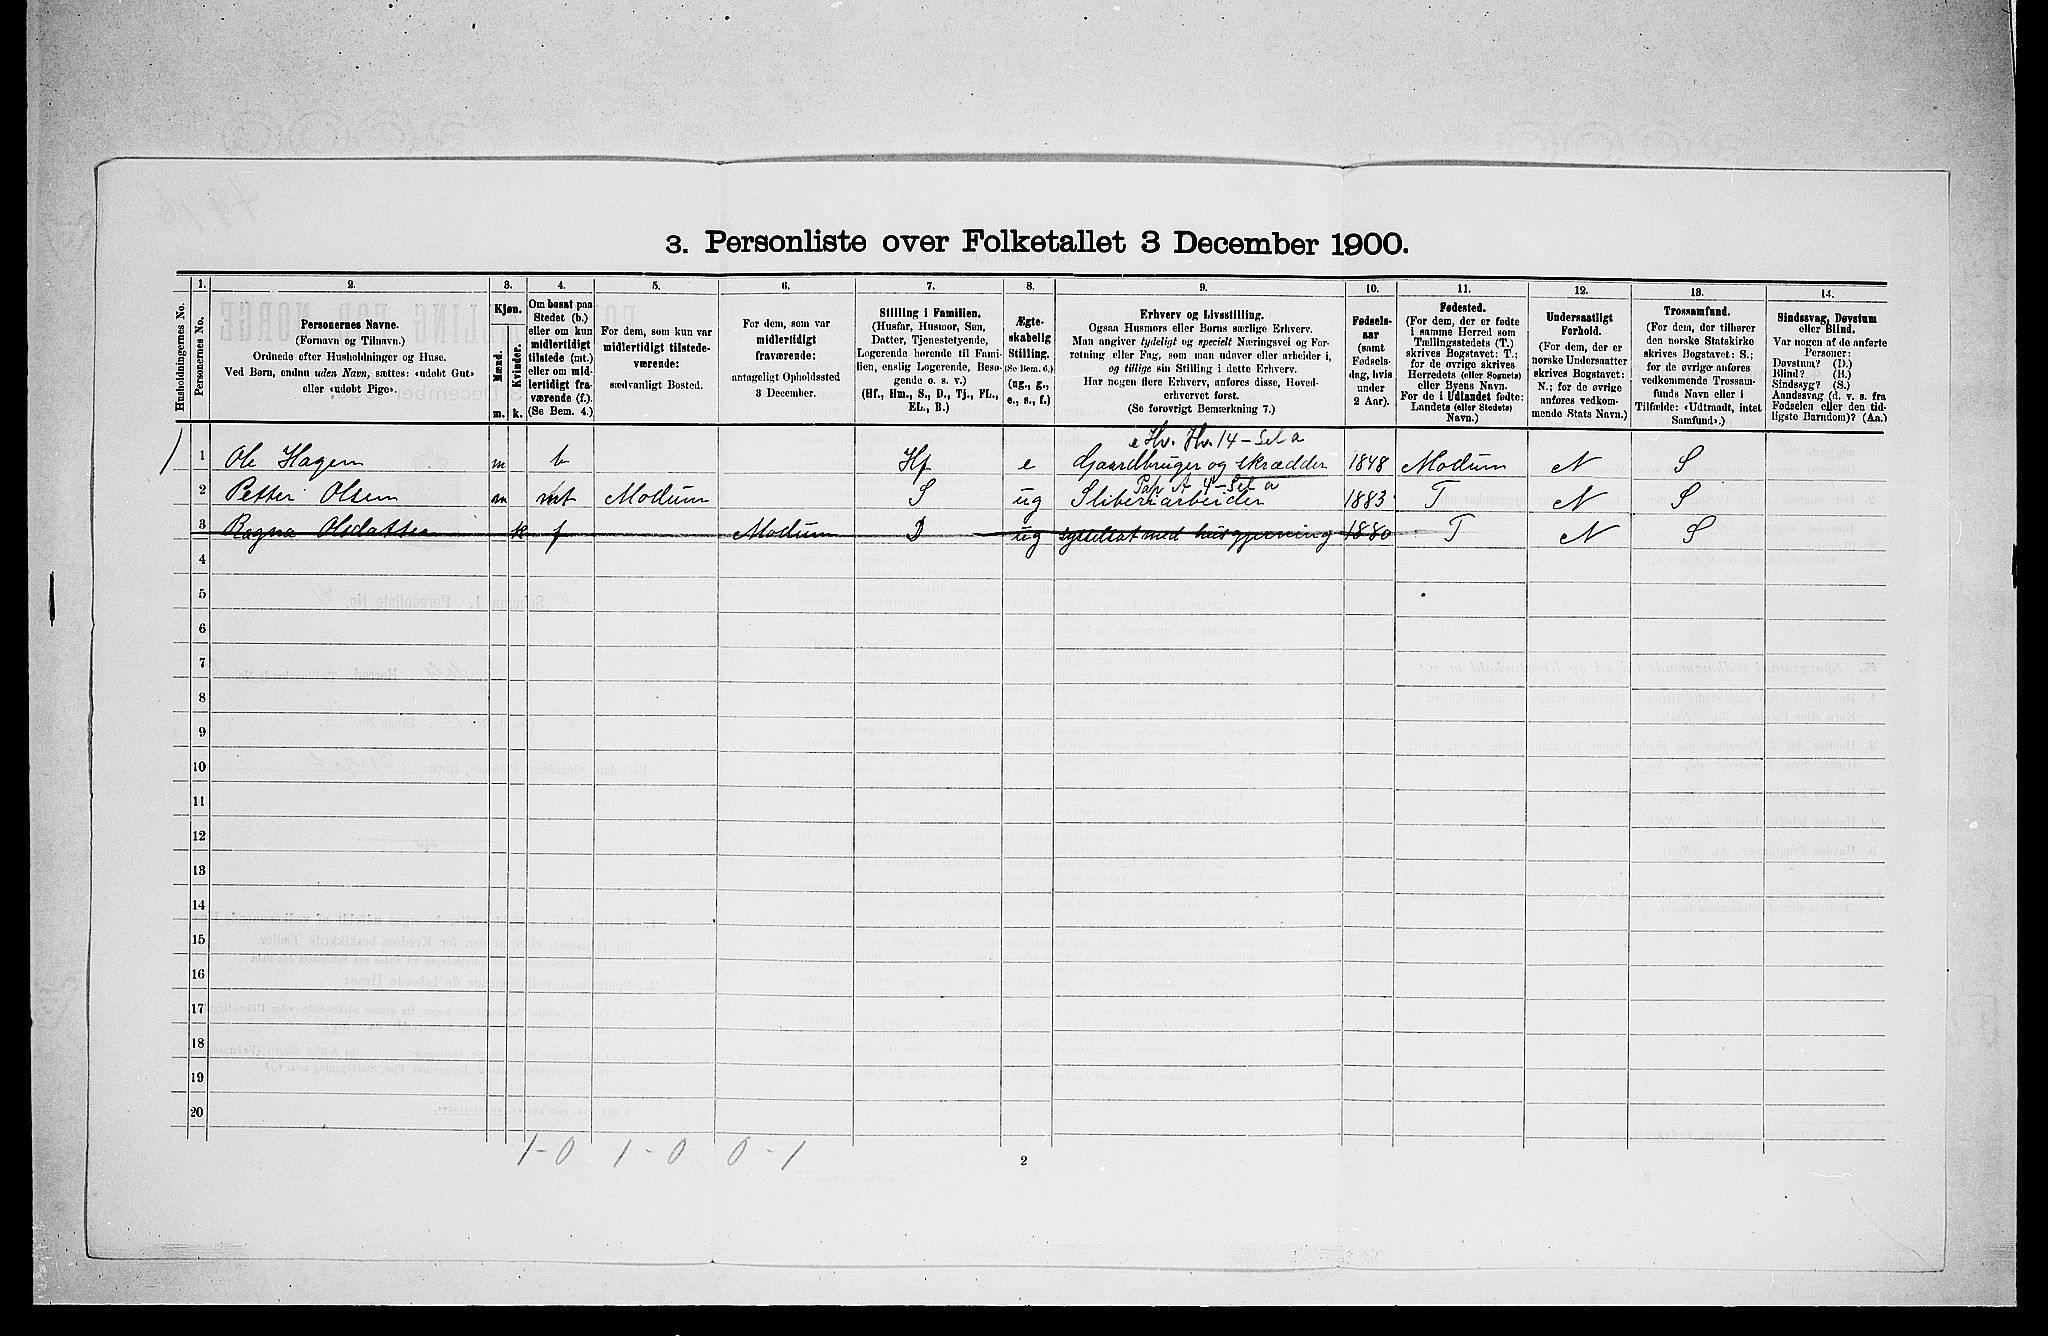 3. Personliste over Folketallet 3 December 1900.
Husholdningernes No.
1.
Personernes No.
2.
Personernes Navne.
(Fornavn og Tilnavn).
Ordnede efter Husholdninger og Huse.
Ved Børn, endnu uden Navn, sættes: «udøbt Gut»
eller «udøbt Pige».
3.
Kjøn.
Mænd.
Kvinder.
m. k.
4.
Om bosat paa
Stedet (b.)
eller om kun
midlertidigt
tilstede (mt.)
eller om mid-
lertidigt fra-
værende (f.).
(Se Bem. 4.)
5.
For dem, som kun var
midlertidigt tilstede-
værende:
sædvanligt Bosted.
6.
For dem, som var
midlertidigt
fraværende:
antageligt Opholdssted
3 December.
7.
Stilling i Familien.
(Husfar, Husmor, Søn,
Datter, Tjenestetyende,
Logerende hørende til Fami-
lien, enslig Logerende, Besø-
gende o. s. v.)
(Hf., Hm., S., D., Tj., FL.,
EL., B.)
8.
Ægte-
skabelig
Stilling.
(Se Bem. 6.)
(ug., g.,
e., s., f.)
9.
Erhverv og Livsstilling.
Ogsaa Husmors eller Børns særlige Erhverv.
Man angiver tydeligt og specielt Næringsvei og For-
retning eller Fag, som man udøver eller arbeider i,
og tillige sin Stilling i dette Erhverv.
Har nogen flere Erhverv, anføres disse, Hoved-
erhvervet først.
(Se forøvrigt Bemærkning 7.)
10.
Fødsels-
aar
(samt
Fødsels-
dag, hvis
under
2 Aar).
11.
Fødested.
(For dem, der er fødte
i samme Herred som
Tællingsstedets (T.)
skrives Bogstavet: T.;
for de øvrige skrives
Herredets (eller Sognets)
eller Byens Navn.
For de i Udlandet fødte:
Landets (eller Stedets)
Navn.)
12.
Undersaatligt
Forhold.
(For dem, der er
norske Undersaatter
skrives Bogstavet:
N.; for de øvrige
anføres vedkom-
mende Stats Navn.)
13.
Trossamfund.
(For dem, der tilhører
den norske Statskirke
skrives Bogstavet: S.;
for de øvrige anføres
vedkommende Trossam-
funds Navn eller i
Tilfælde: «Udtraadt, intet
Samfund».)
14.
Sindssvag, Døvstum
eller Blind.
Var nogen af de anførte
Personer:
Døvstum? (D.)
Blind? (B.)
Sindssyg? (S.)
Aandssvag (d. v. s. fra
Fødselen eller den tid-
ligste Barndom)? (Aa.)
e Hv. Hv. 14 - Sel a
1 Ole Hagen m b Hf e Gaardbruger og skrædder 1848 Modum N S
Pap A 4 - Sel a
2 Petter Olsen m mt Modum S ug Sliberiarbeider 1883 T N S
3 Ragna Olsdatter k f Modum D ug sysselsat med husgjerning 1880 T N S
4
5
6
7
8
9
10
11
12
13
14
15
16
17
18
19
20
1-0 1-0 0-1
2